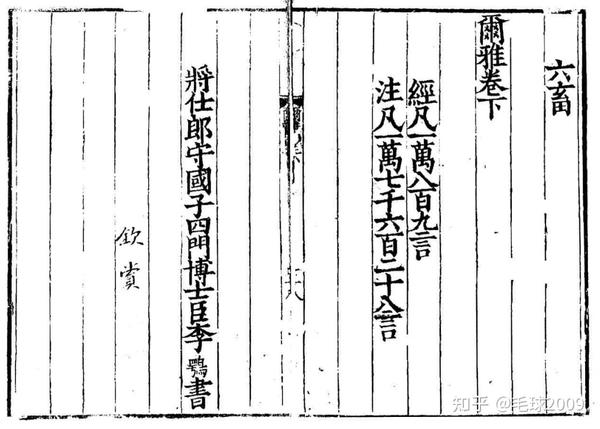 六畜
爾雅卷下
經凡一萬八百九言
注凡一萬七千六百二十八言
將仕郎守國子四門博士臣李鶚書
欽賞
知乎 @毛球2009